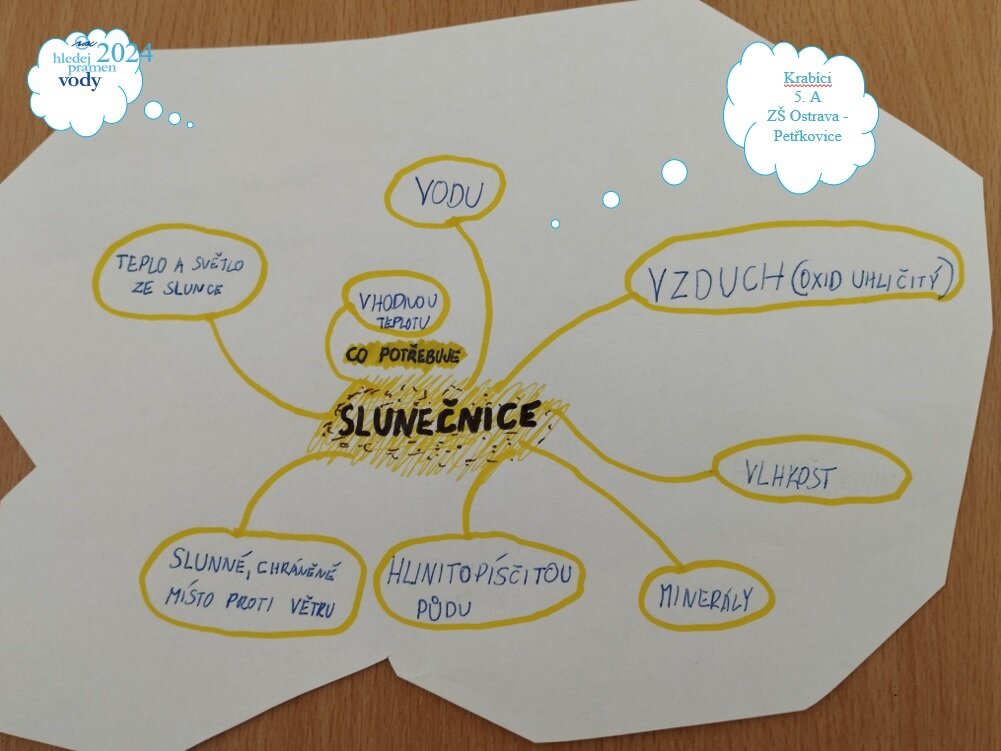 hledej 2024
pramen
vody
Krabíci
5. A
ZŠ Ostrava -
Petřkovice
VODU
TEPLO A SVĚTLO
ZE SLUNCE
VHODNOU
TEPLOTU
VZDUCH (OXID UHLIČITÝ)
CO POTŘEBUJE
SLUNEČNICE
VLHKOST
SLUNNÉ, CHRÁNĚNÉ
MÍSTO PROTI VĚTRU
HLINITOPÍSČITOU
PŮDU
MINERÁLY